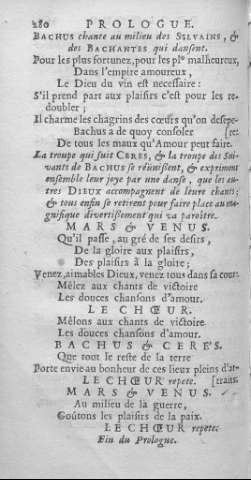 280 PROLOGUE.
BACHUS chante au milieu des SILVAINS, &
des BACHANTES qui dansent.
Pour les plus fortunez, pour les pl⁹ malheureux,
Dans l'empire amoureux,
Le Dieu du vin est necessaire :
S'il prend part aux plaisirs c'est pour les re-
doubler ;
Il charme les chagrins des cœurs qu'on desepe-
Bachus a de quoy consoler [re:
De tous les maux qu'Amour peut faire.
La troupe qui suit CERES, & la troupe des Sui-
vants de BACHUS se réünissent, & expriment
ensemble leur joye par une danse, que les au-
tres DIEUX accompagnent de leurs chants;
& tous enfin se retirent pour faire place au ma-
gnifique divertissement qui va paroître.
MARS & VENUS.
Qu'il passe, au gré de ses desirs,
De la gloire aux plaisirs,
Des plaisirs à la gloire ;
Venez, aimables Dieux, venez tous dans sa cour:
Mêlez aux chants de victoire
Les douces chansons d'amour.
LE CHŒUR.
Mêlons aux chants de victoire
Les douces chansons d'amour.
BACHUS & CERES.
Que tout le reste de la terre
Porte envie au bonheur de ces lieux pleins d'at-
LE CHŒUR repete. [traits.
MARS & VENUS.
Au milieu de la guerre,
Goûtons les plaisirs de la paix.
LE CHŒUR repete:
Fin du Prologue.